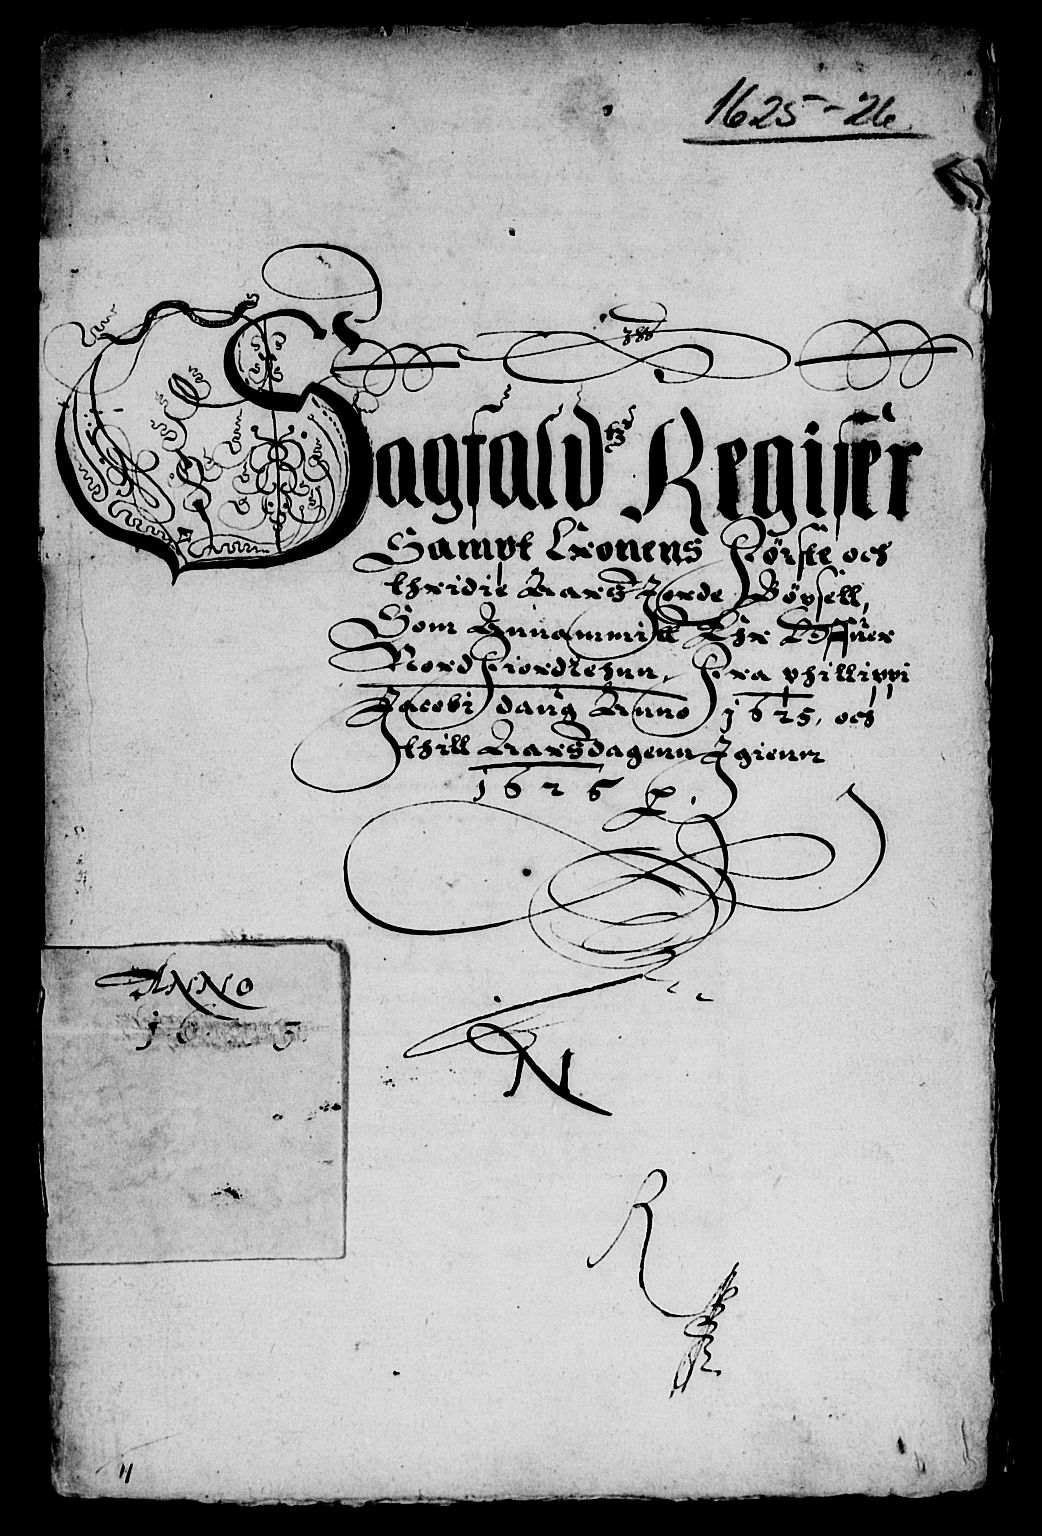 1625-26.
Sagfaldtz Register
Sampt Cronens Förste och
thridie Aars Jorde Böxsell,
Som Annammitt Ehr Offuer
Nordfiordlehnn, Fra phillippi
Jacobi daug Anno 1625, och
thill Aarsdagenn Igienn
1626
ANNO
N
R